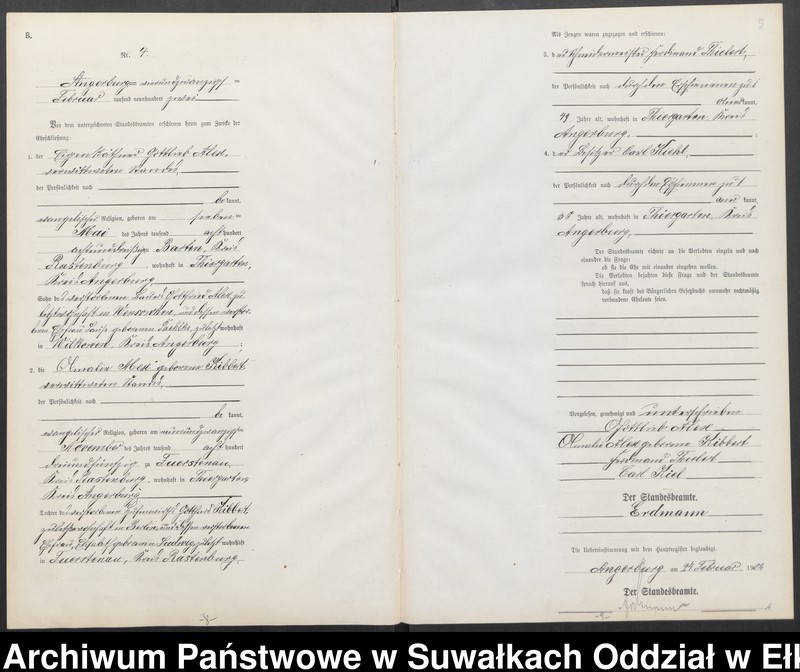 B.
Nr. 4.
Angerburg am vierundzwanzigsten
Februar tausend neunhundert zwei
Vor dem unterzeichneten Standesbeamten erschienen heute zum Zwecke der
Eheschließung:
1. der Eigenkäthner Gottlieb Alex,
verwittweten Standes,
der Persönlichkeit nach
be kannt,
evangelischer Religion, geboren am sieben
Mai des Jahres tausend acht hundert
achtunddreißig zu Barten, Kreis
Rastenburg, wohnhaft in Thiergarten,
Kreis Angerburg
Sohn des verstorbenen Gottfried Alex, zu
wohnhaft
in Wilkowen, Kreis Angerburg;
2. die Amalie Alex geborene Kibbert
verwittweten Standes,
der Persönlichkeit nach
be kannt,
evangelischer Religion, geboren am neunundzwanzigsten
November des Jahres tausend acht hundert
dreiundfünfzig zu Fuerstenau,
Kreis Rastenburg, wohnhaft in Thiergarten
Kreis Angerburg
Tochter des verstorbenen Gottfried Kibbert
zuletzt wohnhaft in Berlin, und dessen verstorbenen
Ehefrau, geborenen Ludwig, zuletzt wohnhaft
in Fuerstenau, Kreis Rastenburg
Als Zeugen waren zugezogen und erschienen:
3. der Schmiedemeister Ferdinand Thielert,
der Persönlichkeit nach durch den Erschienenen zu 1
anerkannt,
49 Jahre alt, wohnhaft in Thiergarten, Kreis
Angerburg,
4. der Besitzer Carl Kiehl,
der Persönlichkeit nach durch den Erschienenen zu 1
aner kannt,
Jahre alt, wohnhaft in Thiergarten, Kreis
Angerburg,
Der Standesbeamte richtete an die Verlobten einzeln und nach
einander die Frage:
ob sie die Ehe mit einander eingehen wollen.
Die Verlobten bejahten diese Frage und der Standesbeamte
sprach hierauf aus,
daß sie kraft des Bürgerlichen Gesetzbuchs nunmehr rechtmäßig
verbundene Eheleute seien.
Vorgelesen, genehmigt und unterschrieben
Gottlieb Alex
Amalie Alex geborene Kibbert
Ferdinand Thielert
Carl Kiel
Der Standesbeamte.
Erdmann
Die Uebereinstimmung mit dem Hauptregister beglaubigt.
Angerburg am 24 Februar 190
Der Standesbeamte.
Erdmann
Archiwum Państwowe w Suwałkach Oddział w Eł